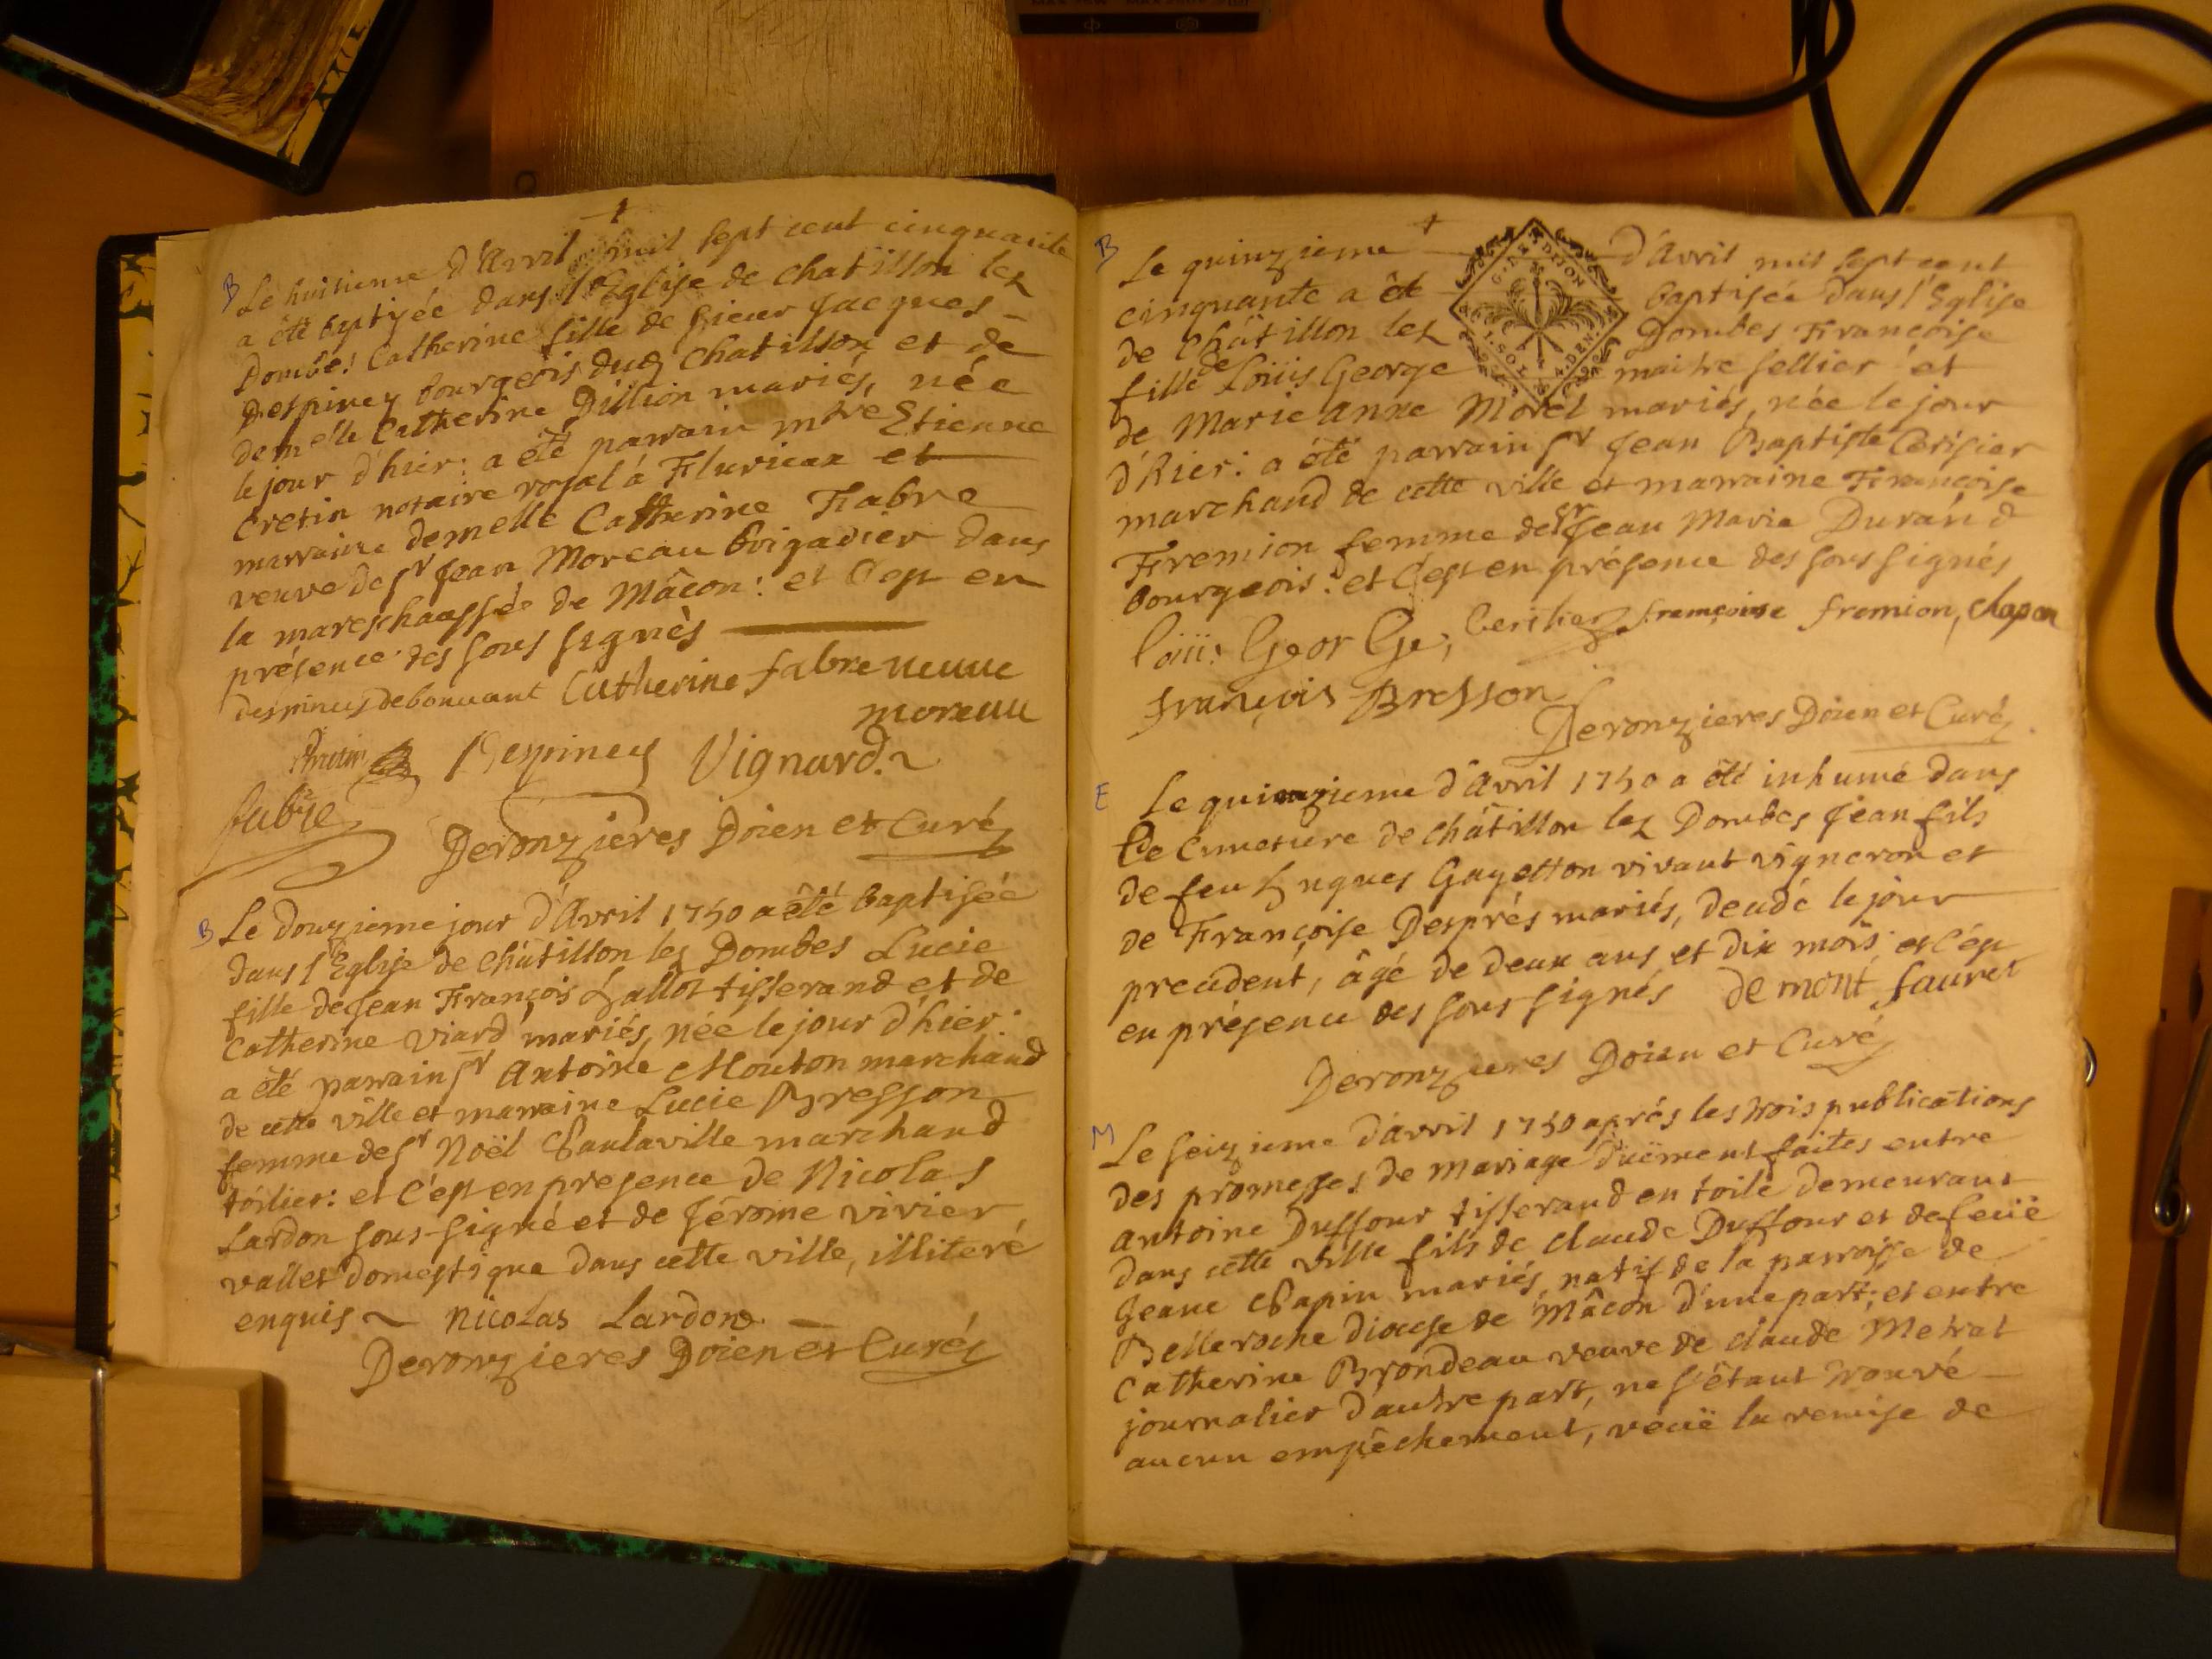 B Le huitieme d'Avril mil sept cent cinquante
a été baptisée dans l'Eglise de chatillon lez
Dombes Catherine fille de sieur Jacques
Despiney bourgeois dud chatillon et de
demelle Catherine Dillion mariés, née
le jour d'hier: a été parrain mtre Etienne
Cretin notaire royal à Flurieux et
marraine demelle Catherine Fabre
veuve de sr Jean Moreau brigadier dans
la mareschaussée de Mâcon: et c'est en
présence des sous signés
despiney debouvant Catherine fabre veuve
moreau
Cretin Despiney Vignard
fabre
Deronzieres Doien et Curé
B Le douzieme jour d'Avril 1750 a été baptisée
dans l'Eglise de châtillon lez Dombes Lucie
fille de Jean François Lallot tisserand et de
Catherine Viard mariés, née le jour d'hier:
a été parrain sr Antoine Mouton marchand
de cette ville et marraine Lucie Bresson
femme de sr Noël Chanlaville marchand
toilier: et c'est en presence de Nicolas
Lardon sous-signé et de Jérome vivier
vallet domestique dans cette ville, illiteré
enquis Nicolas Lardon
Deronzieres Doien et Curé
B Le quinzieme d'Avril mil sept cent
cinquante a été baptisée dans l'Eglise
de Châtillon lez Dombes Françoise
fille de Loüis George maitre sellier et
de Marie Anne Morel mariés, née le jour
d'hier: a été parrain sr Jean Baptiste Cerisier
marchand de cette ville et marraine Françoise
Fremion femme de sr Jean Marie Durand
bourgeois: et c'est en présence des sous signés
Loüis GeorGe, françoise fremion, chapon
françois Bresson
Deronzieres Doien et Curé
E Le quinzieme d'Avril 1750 a été inhumé dans
le Cimetiere de châtillon lez Dombes Jean fils
de feu hugues Gayetton vivant vigneron et
de Françoise Després mariés, decedé le jour
precedent, âgé de deux ans et dix mois: et c'est
en présence des sous-signés de mont fauret
Deronzieres Doien et Curé
M Le seizieme d'avril 1750 aprés les trois publications
des promesses de mariage düement faites entre
antoine Duffour tisserand en toile demeurant
dans cette ville fils de claude Duffour et de feüe
Jeane Chapin mariés, natif de la parroisse de
Belleroche diocese de Mâcon d'une part; et entre
Catherine Brondeau veuve de claude Metrat
journalier d'autre part, ne s'étant trouvé
aucun empêchement, veüe la remise de